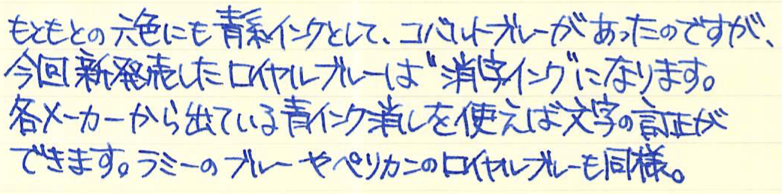 もともとの六色にも青系インクとして、コバルトブルーがあったのですが、
今回新発売したロイヤルブルーは"消字インク"になります。
各メーカーから出ている青インク消しを使えば文字の訂正が
できます。ラミーのブルーやペリカンのロイヤルブルーも同様。